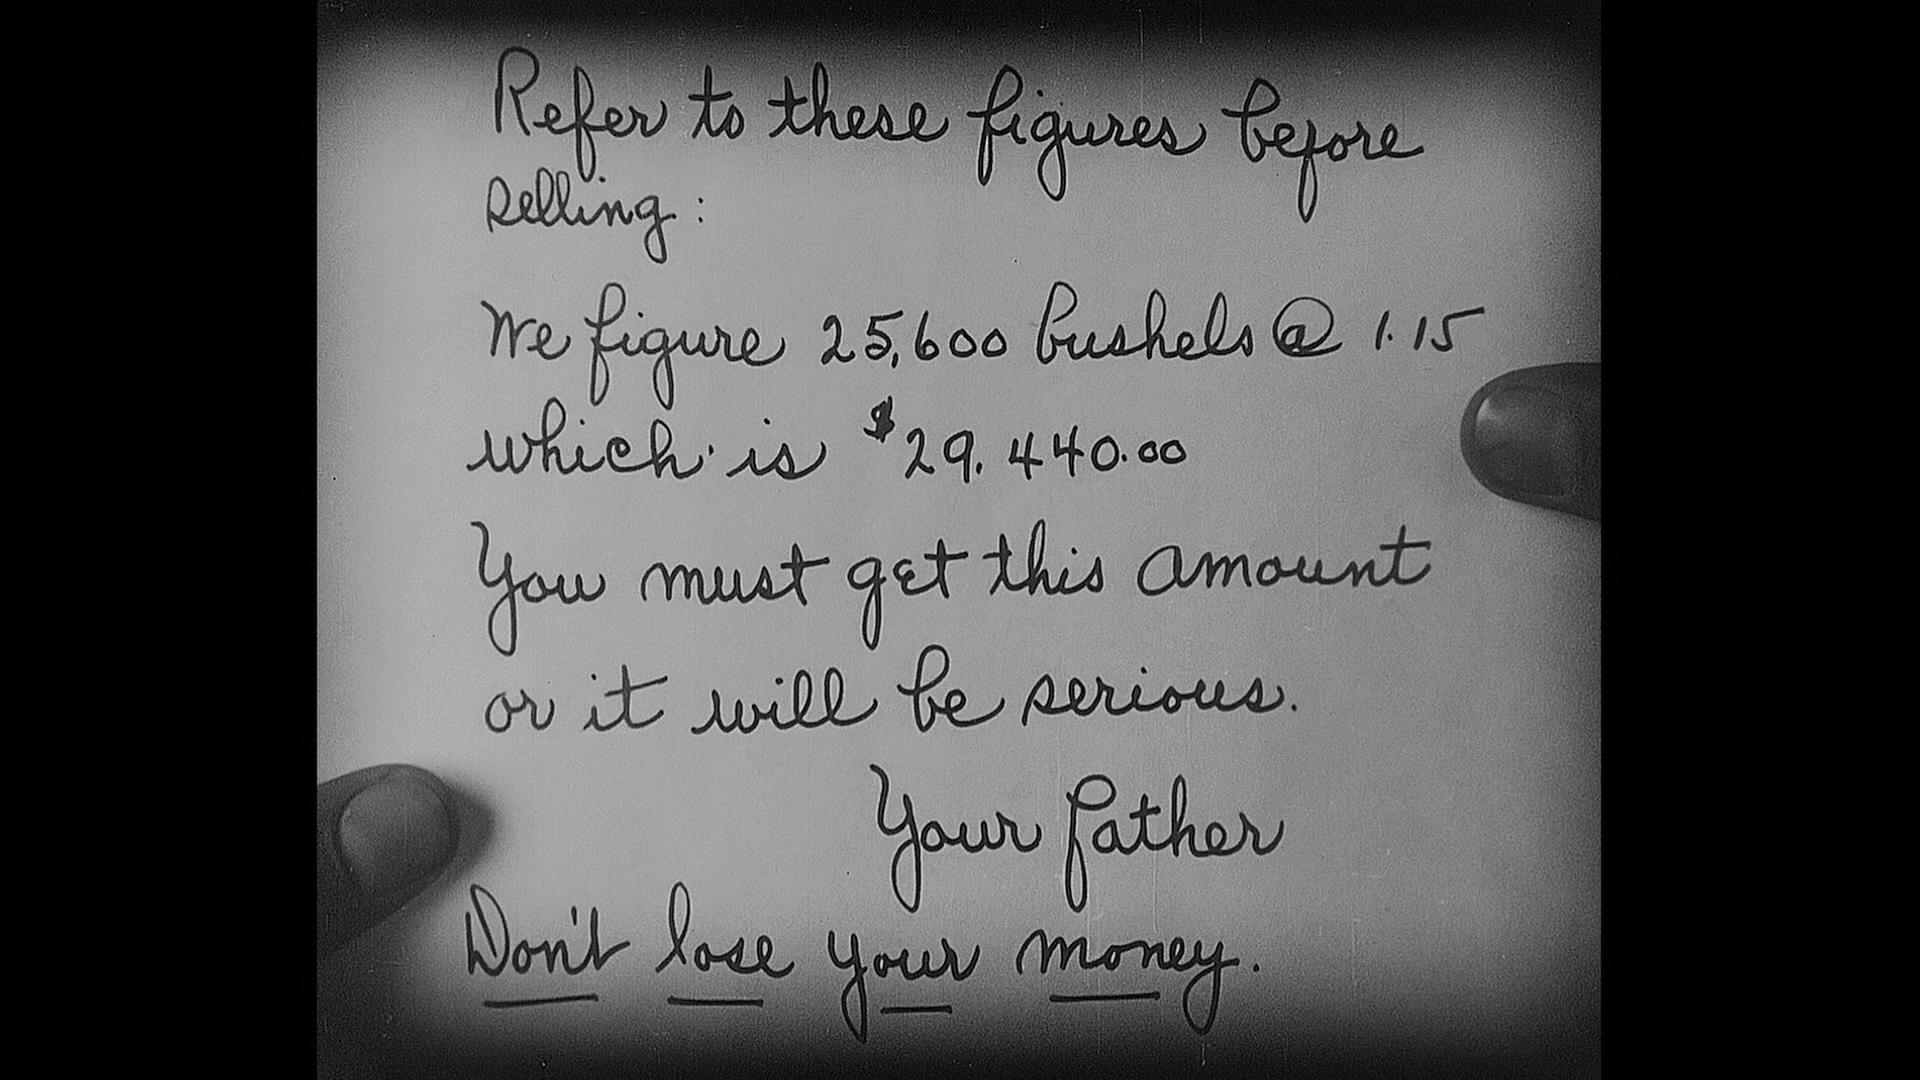 Refer to these figures before
selling:
We figure 25,600 bushels @ 1.15
which is $29,440.00
You must get this amount
or it will be serious.
Your father
Don't lose your money.